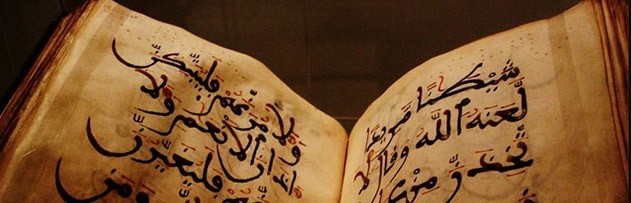 شَيْطَٰنًا مَّرِيدًا
لَّعَنَهُ ٱللَّهُ وَقَالَ لَأَ
تَّخِذَنَّ مِنْ
وَلَأٓمُرَنَّهُمْ فَلَيُبَتِّكُنَّ
ءَاذَانَ ٱلْأَنْعَٰمِ وَلَأٓ
فَلَيُغَيِّرُنَّ
وَمَن